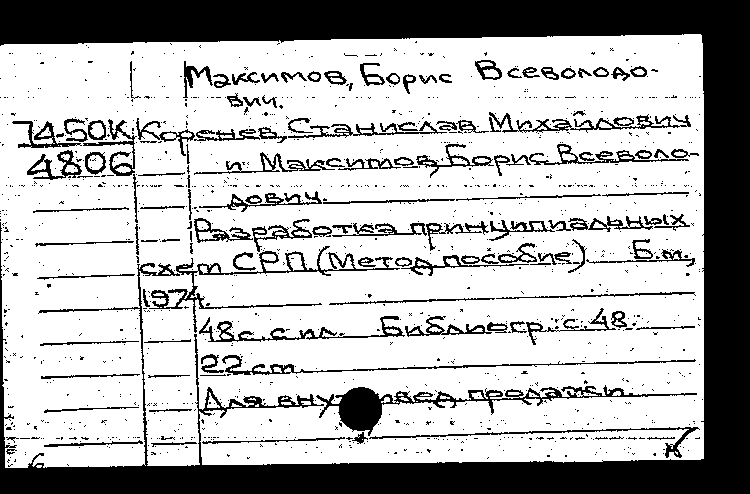 Максимов, Борис Всеволодо-
вич.
74-50К Коренев, Станислав Михайлович
4806 и Максимов, Борис Всеволо-
дович.
Разработка принципиальных
схем СРП. (Метод. пособие) Б.м.,
1974.
48 с. с ил. Библиогр.: с. 48.
22 см.
Для продажи.